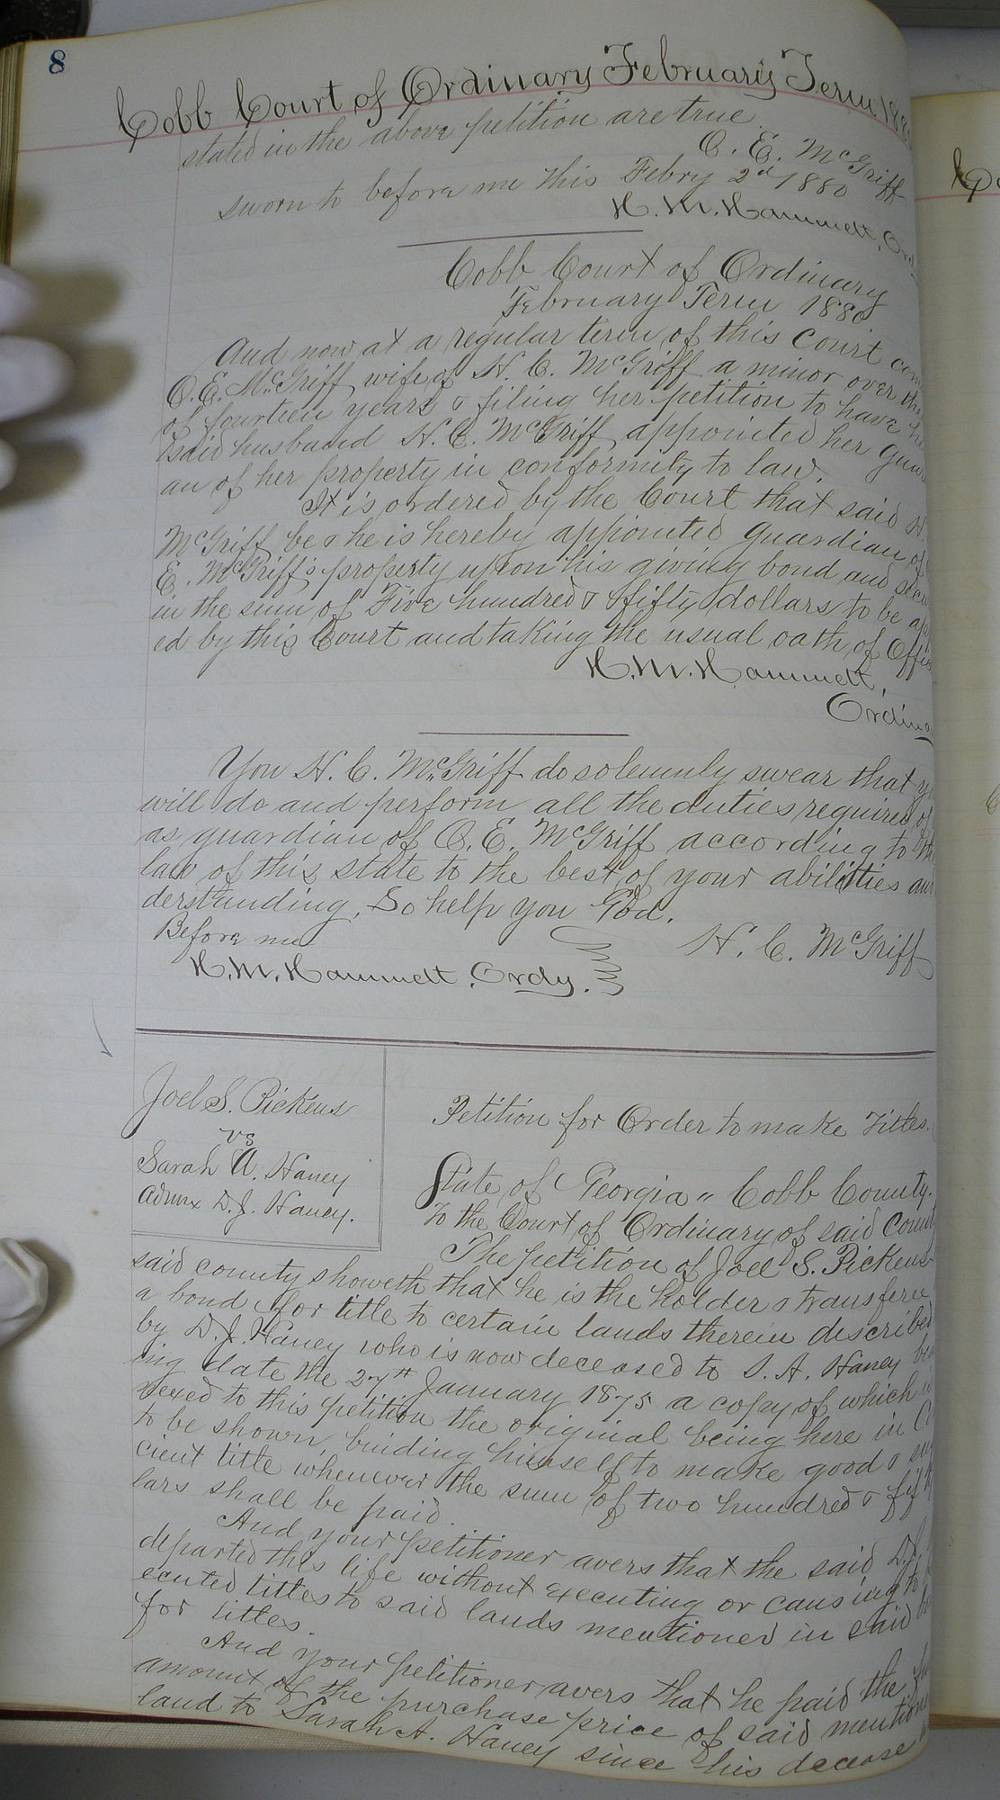 8
Cobb Court of Ordinary February Term 188
stated in the above petition are true.
O. E. McGriff
sworn to before me this Febry 2nd 1880
H. M. Hammett, Ord
Cobb Court of Ordinary
February Term 1880
And now at a regular term of this Court com
O. E. McGriff wife of H. C. McGriff a minor over the
of fourteen years & filing her petition to have he
said husband H. C. McGriff appointed her guar
an of her property in conformity to law.
It is ordered by the Court that said H.
McGriff be & he is hereby appointed Guardian of
E. McGriff's property upon his giving bond and
in the sum of Five hundred & fifty dollars to be ap
ed by this Court and taking the usual oath of Offi
H. M. Hammett,
Ordina
You H. C. McGriff do solemnly swear that y
will do and perform all the duties required of
as guardian of O. E. McGriff according to th
law of this state to the best of your abilities an
derstanding, So help you God.
Before me
H. C. McGriff
H. M. Hammett, Ordy.
Joel S. Pickens
vs
Sarah A. Haney
admx D. J. Haney.
Petition for Order to make Titles.
State of Georgia " Cobb County.
To the Court of Ordinary of said County
The petition of Joel S. Pickens
said county showeth that he is the holder & transferee
a bond for title to certain lands therein described
by D. J. Haney who is now deceased to S. A. Haney bea
ing date the 27th January 1875 a copy of which is
nexed to this petition the original being here in C
to be shown, binding himself to make good & su
cient title whenever the sum of two hundred & fift
lars shall be paid.
And your petitioner avers that the said D. J.
departed this life without executing or causing to
ecuted titles to said lands mentioned in said bo
for titles.
And your petitioner avers that he paid the
amount of the purchase price of said mention
land to Sarah A. Haney since his decease